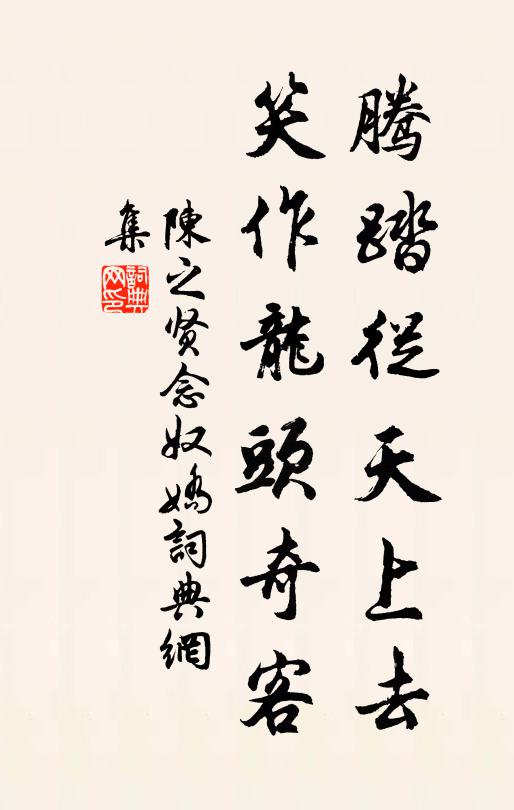 腾踏從天上去
笑作龍頭奇客
陳之贤念奴嬌詞典網
集
詞典网印